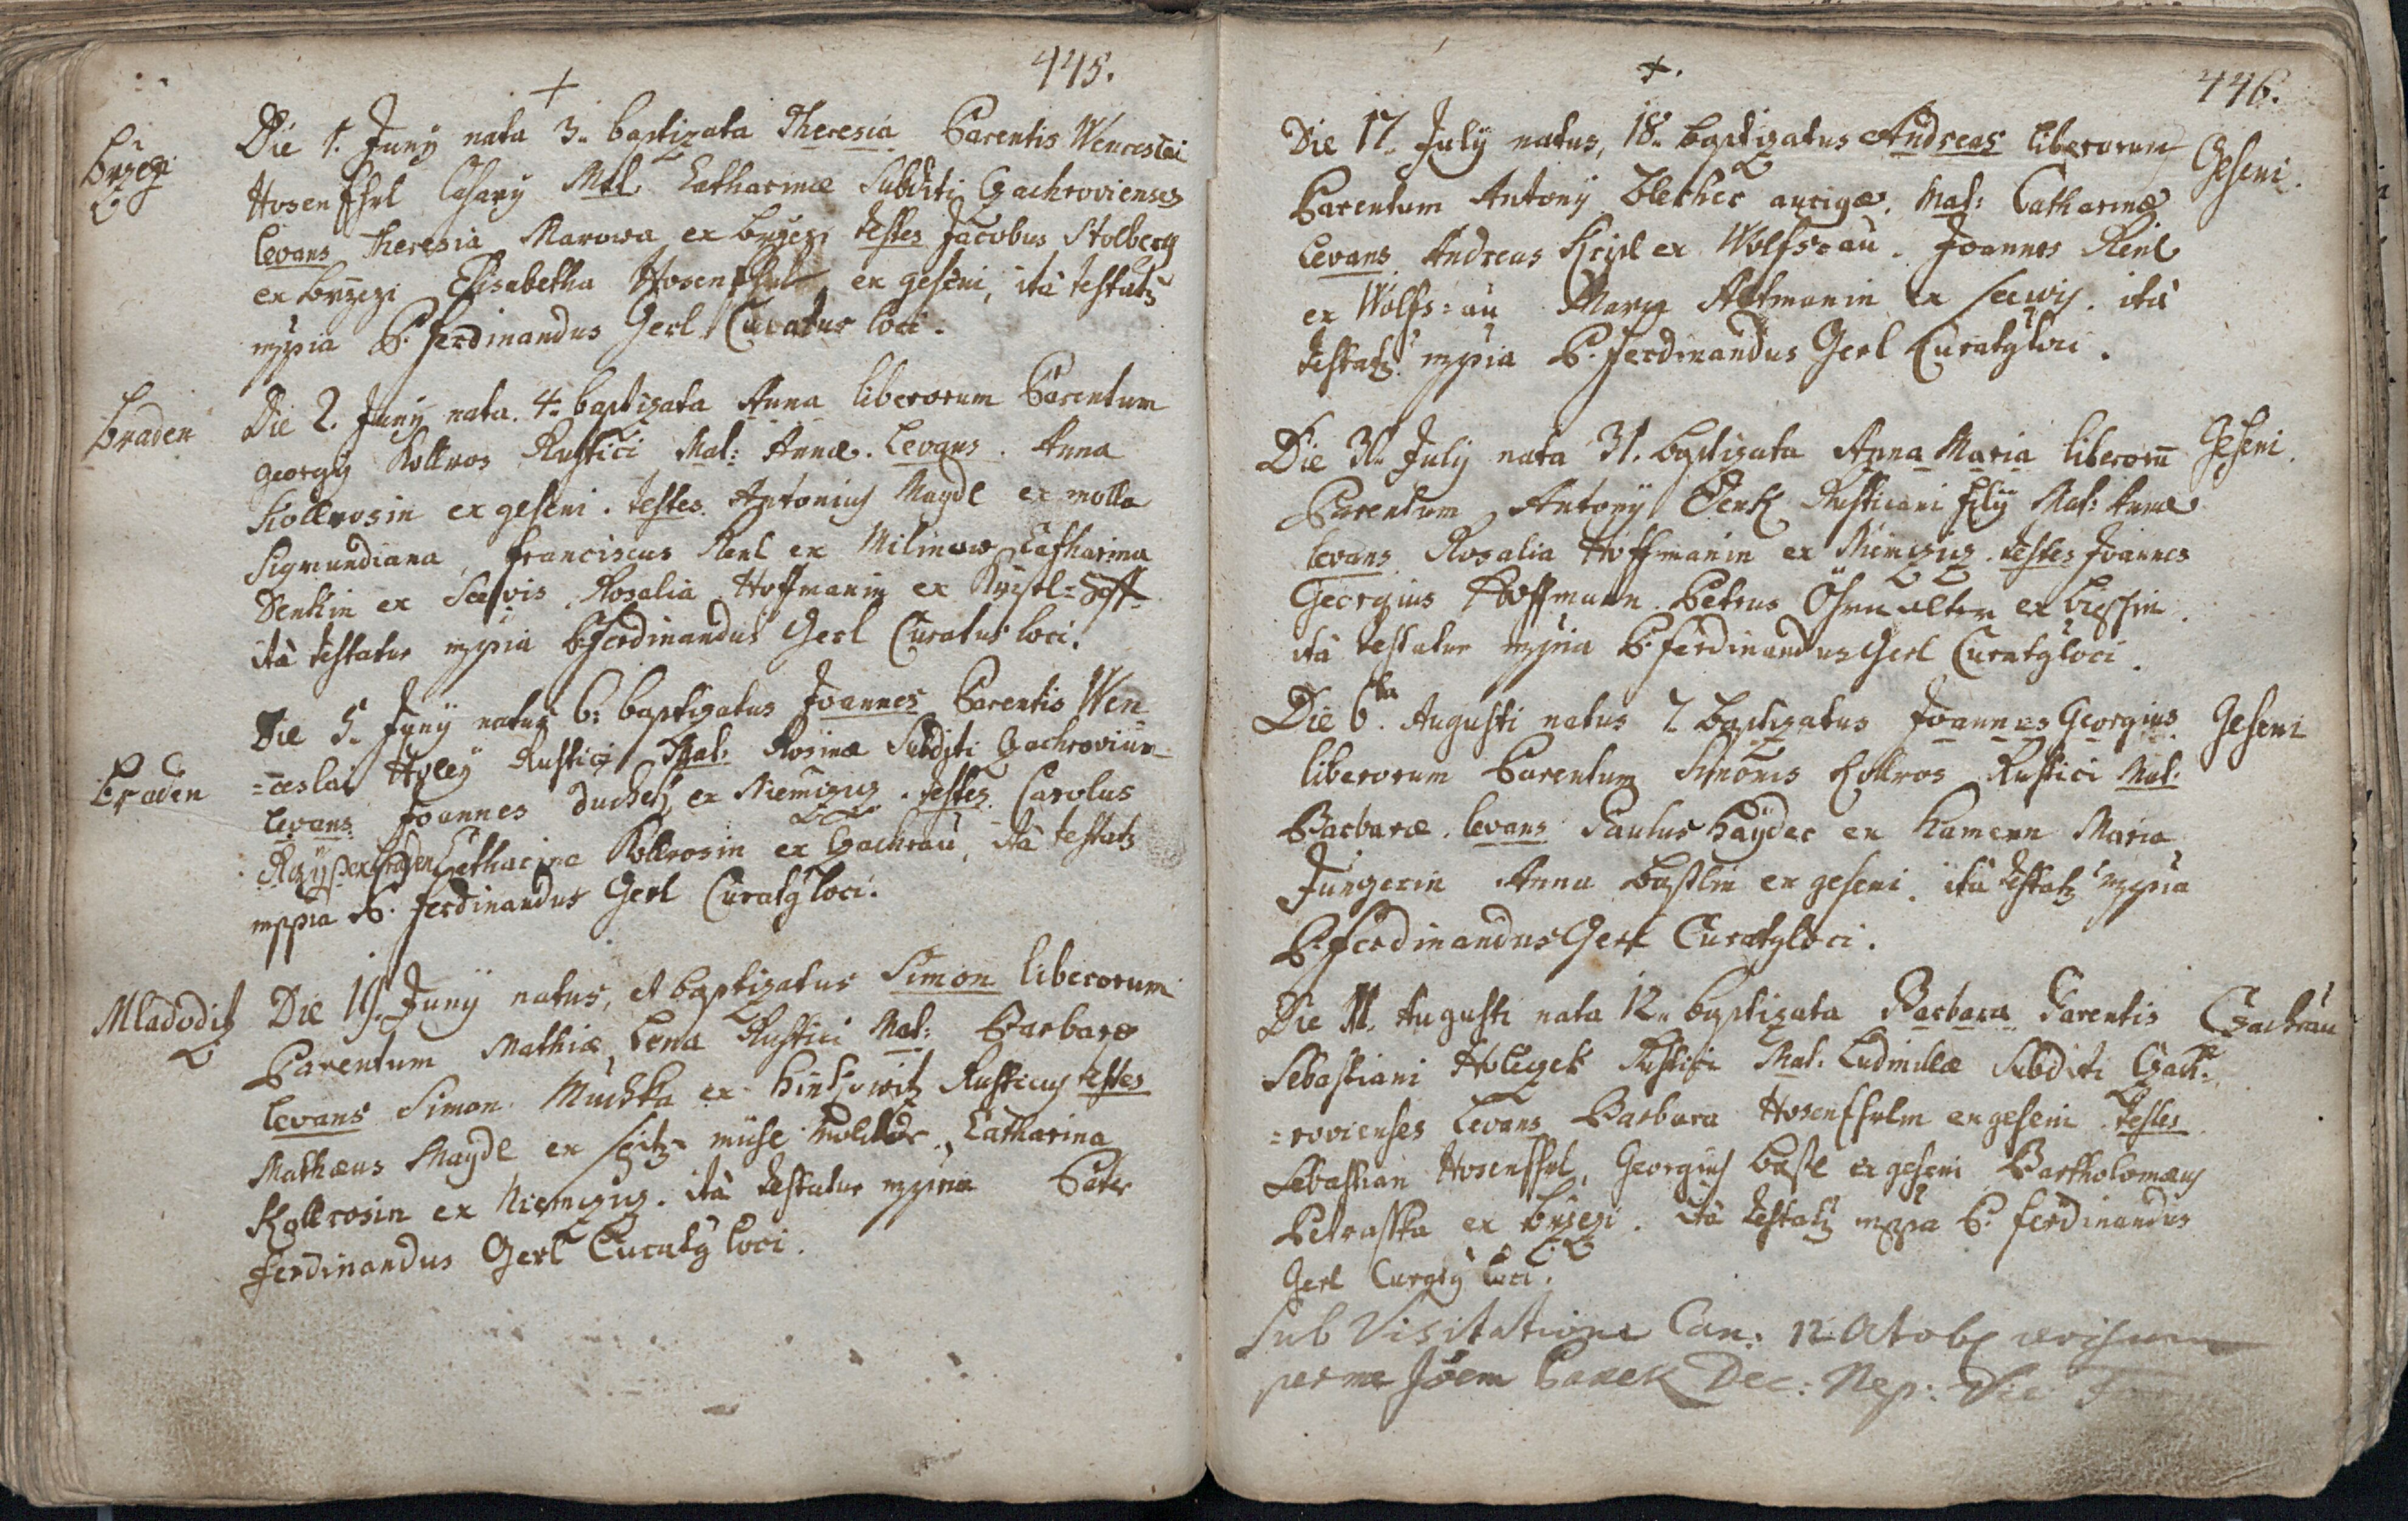 445.
+
Brzezi
Die 1. Juny nata 3. baptizata Theresia Parentis Wenceslai
Hosenschrl Casary Mat. Catharinæ Subditi Czachrovienses
levans Theresia Marowa ex Brzezi testes Jacobus Stolberg
ex Brzezi Elisabetha ex geseni, ità testatz
mppia P. Ferdinandus Gerl Curatus loci.
Braden
Die 2. Juny nata 4. baptizata Anna liberorum Parentum
Georgÿ Kollros Rustici Mat: Annæ. Levans. Anna
Kollrosin ex geseni. testes Antonius Maydl ex molla
Sigmundiana, Franciscus Renl ex Milinow Catharina
Denkin ex Seewis Rosalia Hoffmanin ex
ità testatur mppia P. Ferdinandus Gerl Curatus loci.
Braden
Die 5. Juny natus 6: baptizatus Joannes Parentis Wen-
=ceslai Holey Rustici Mat: Rosinæ Subditi Czachrovien-
levans Joannes Duchek ex Niemczicz. testes Carolus
ex Braden Catharina Kollrosin ex Czachrau, ità testatz
mppia P. Ferdinandus Gerl Curatq loci.
Mladoditz
Die 19. Juny natus, et baptizatus Simon liberorum
Parentum Mathiæ Lena Rustici Mat: Barbaræ
levans Simon Muchka ex Rusticus testes
Mathæus Maydl ex Catharina
Kollrosin ex Niemczicz. ità testatur mppria Pater
Ferdinandus Gerl Curatq loci.
446.
+.
Geseni.
Die 17. July natus, 18. baptizatus Andreas liberorum
Parentum Antony Blecher aurigæ, Mat: Catharinæ
Levans Andreas ex Wolfs=au. Joannes Renl
ex Wolfs=au Marya Altmanin ex Seewis. ità
testatz mppia P. Ferdinandus Gerl Curatq loci.
Geseni.
Die July nata 31. baptizata Anna Maria liberorū
Parentum Antony Denk Rusticani filÿ Mat: Annæ
levans Rosalia Hoffmanin ex Niemczicz. testes Joannes
Georgius Hoffmann. Petrus ex
ità testatur mppria P. Ferdinandus Gerl Curatq loci.
Geseni
Die 6ta. Augusti natus 7. baptizatus Joannes Georgius
liberorum Parentum Simonis Kollros Rustici Mat:
Barbaræ. levans Paulus Haÿder ex Hamern Maria
Jungerin Anna Bastlin ex geseni. ità testatz mppria
P. Ferdinandus Gerl Curatq loci.
Czachrau
Die 11. Augusti nata 12. baptizata Barbara Parentis
Sebastiani Holegek Rustici Mat. Ludmillæ Subditi Czach-
=rovienses Levans Barbara Hosenschrlin ex geseni. testes
Sebastian Hosenschrl, Georgius Bastl ex geseni Bartholomæus
Petraska ex Brzezi. ità testatz mppia P. Ferdinandus
Gerl Curatq loci.
Sub Visitatione Can: 12 Octobr
per me Joem Dec: Nep: